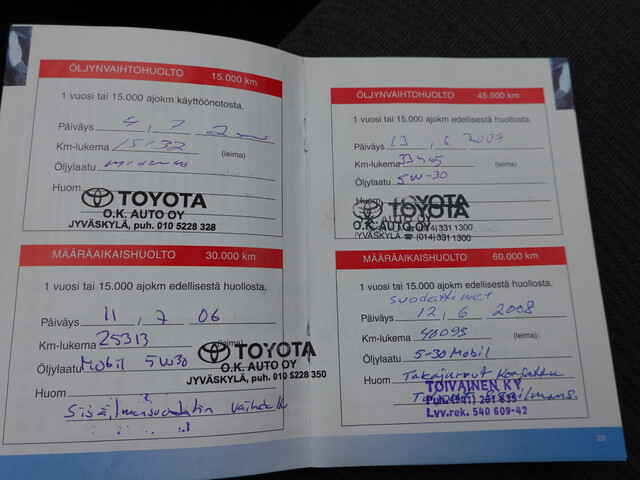 ÖLJYNVAIHTOHUOLTO 15.000 km
1 vuosi tai 15.000 ajokm käyttöönotosta.
Päiväys 4, 7
Km-lukema 15132 (leima)
Öljylaatu
Huom
TOYOTA
O.K. AUTO OY
JYVÄSKYLÄ, puh. 010 5228 328
MÄÄRÄAIKAISHUOLTO 30.000 km
1 vuosi tai 15.000 ajokm edellisestä huollosta.
Päiväys 11, 7 06
Km-lukema 25313 (leima)
Öljylaatu Mobil 5W30
TOYOTA
O.K. AUTO OY
JYVÄSKYLÄ, puh. 010 5228 350
Huom
Sisäilmansuodatin vaihdettu
ÖLJYNVAIHTOHUOLTO 45.000 km
1 vuosi tai 15.000 ajokm edellisestä huollosta.
Päiväys 13, 6 2007
Km-lukema 33405 (leima)
Öljylaatu 5W-30
Huom
TOYOTA
O.K. AUTO OY
JYVÄSKYLÄ ☎ (014) 331 1300
MÄÄRÄAIKAISHUOLTO 60.000 km
1 vuosi tai 15.000 ajokm edellisestä huollosta.
suodattimet
Päiväys 12, 6, 2008
Km-lukema 40093 (leima)
Öljylaatu 5-30 Mobil
Huom Takajarrut korjattu
TOIVAINEN KY
Lvv.rek. 540 609-42
23